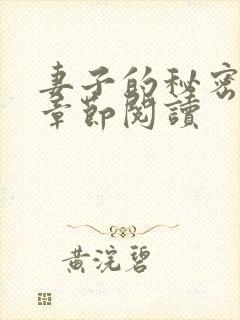 妻子的秘密
章節閱讀
黃浣碧